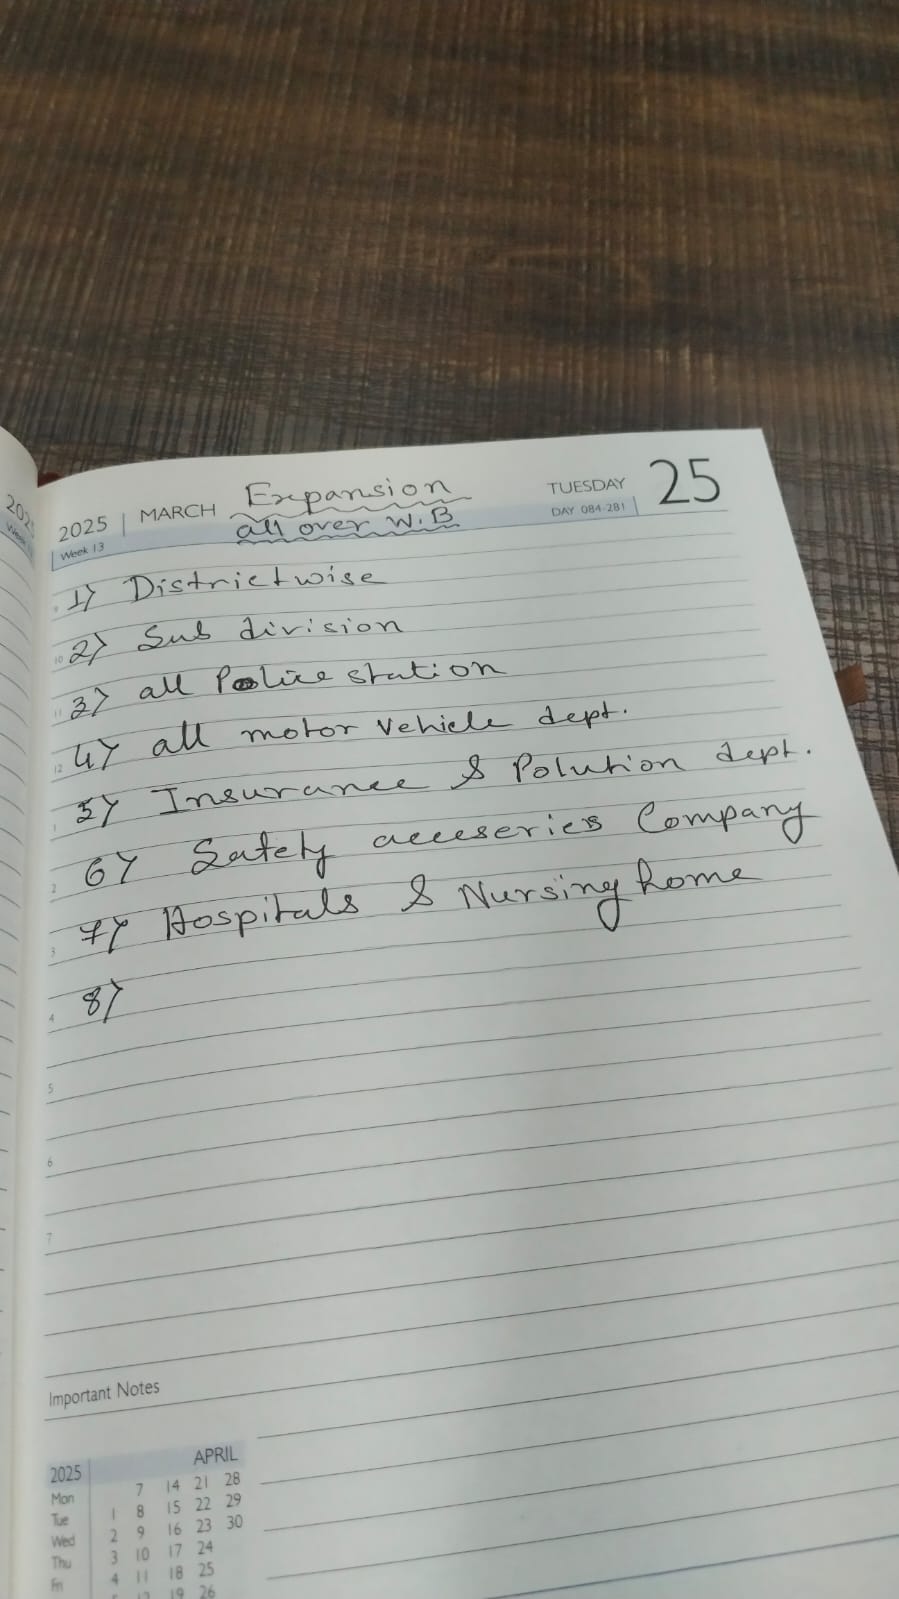 2025 | MARCH Expansion TUESDAY 25
Week 13 all over W.B DAY 084-281
1) Districtwise
2) Sub division
3) all Police station
4) all motor vehicle dept.
5) Insurance & Polution dept.
6) Safety acceseries Company
7) Hospitals & Nursing home
8)
9
10
11
12
1
2
3
4
5
6
7
Important Notes
2025 APRIL
Mon 7 14 21 28
Tue 1 8 15 22 29
Wed 2 9 16 23 30
Thu 3 10 17 24
Fri 4 11 18 25
19 26